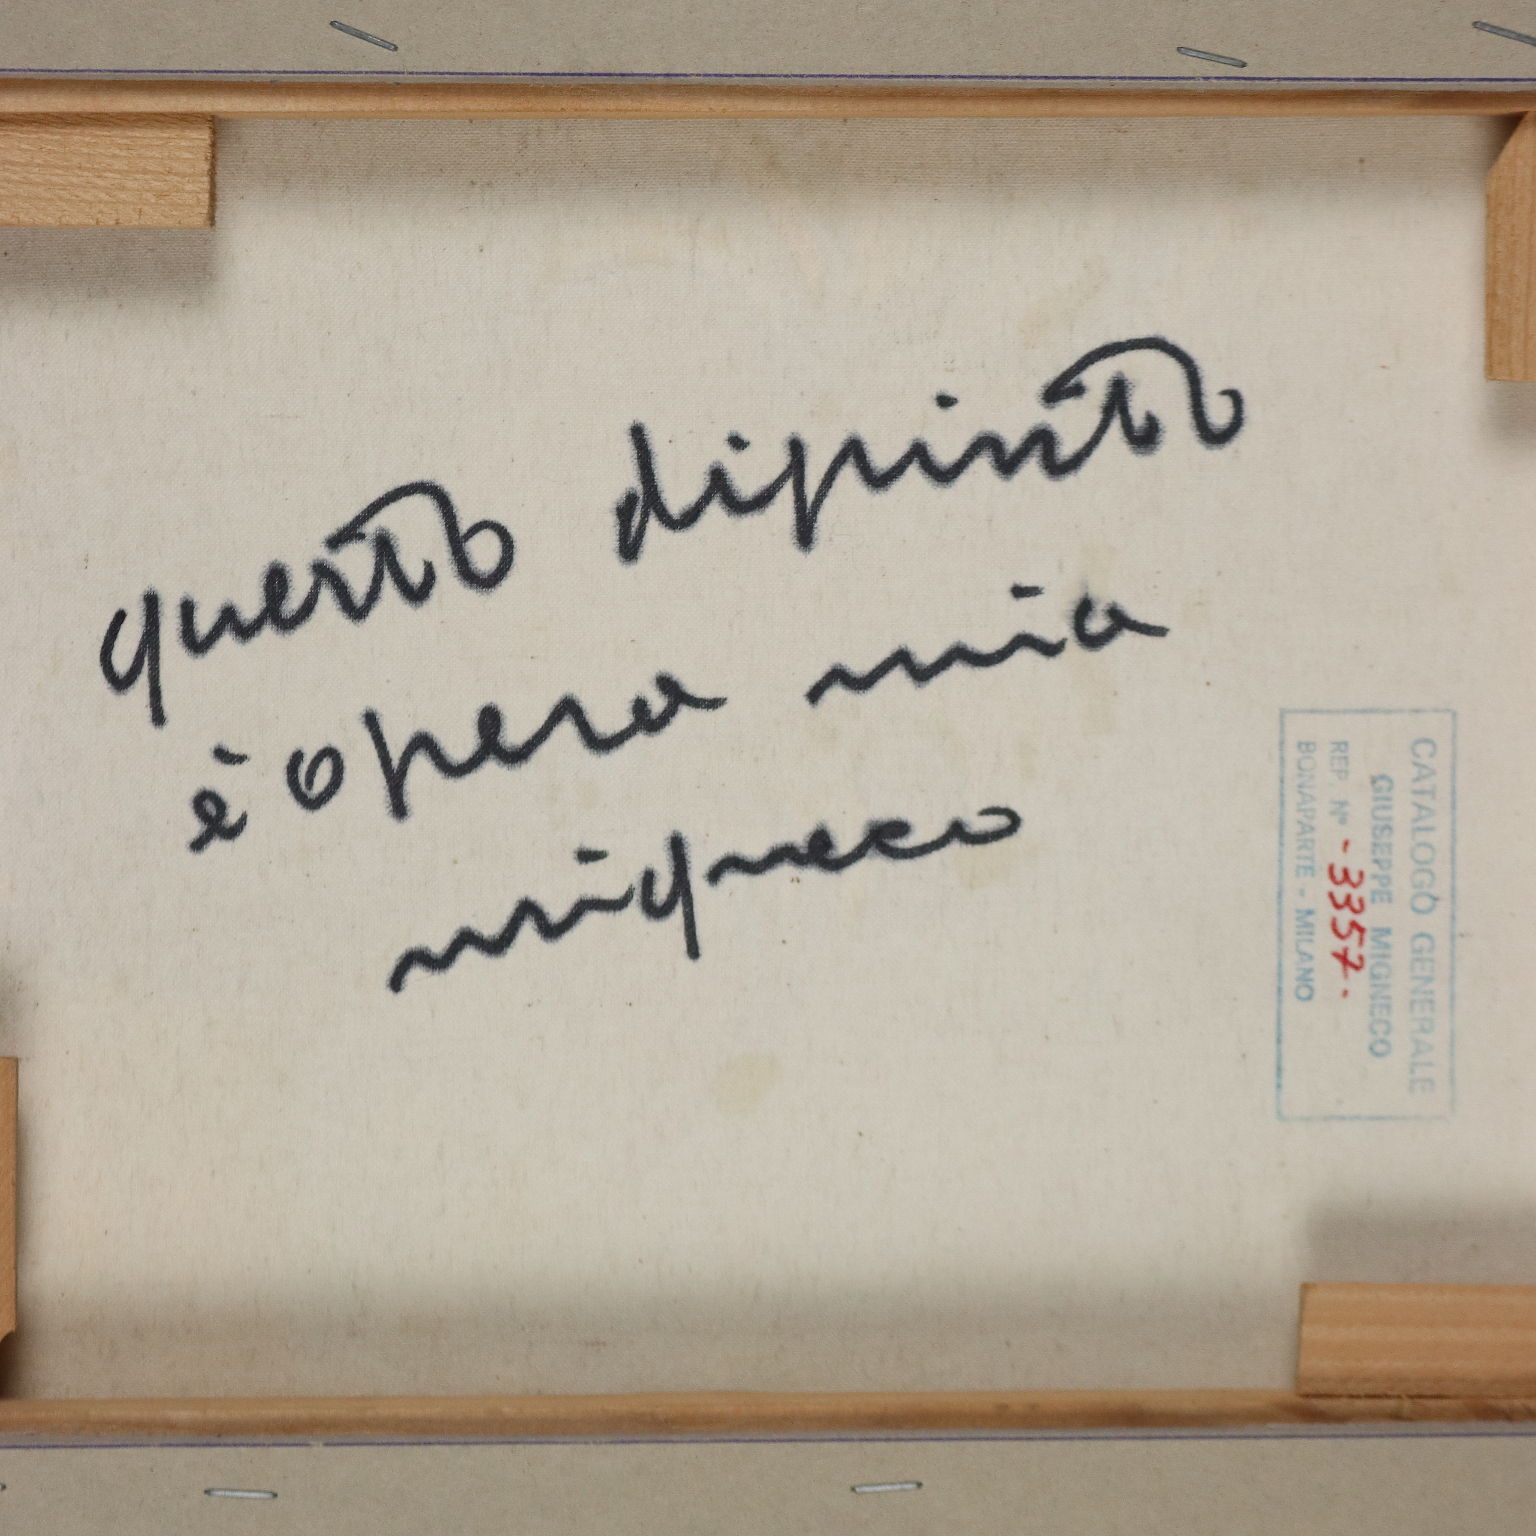 questo dipinto
è opera mia
migneco
CATALOGO GENERALE
GIUSEPPE MIGNECO
REP. N° - 3357.
BONAPARTE - MILANO